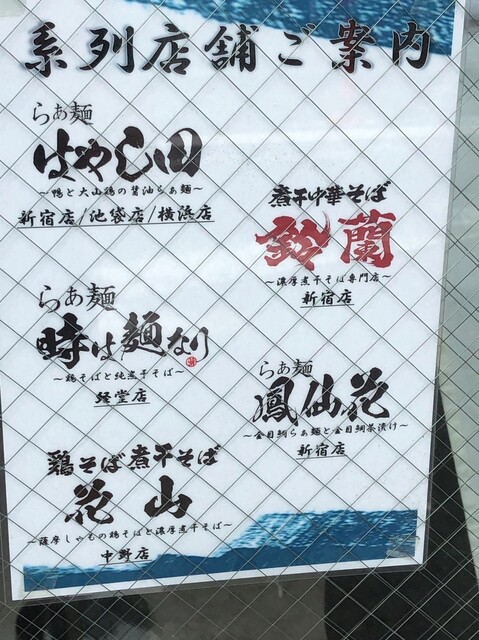 系列店舗ご案内
らぁ麺
はやし田
～鴨と大山鶏の醤油らぁ麺～
新宿店/池袋店/横浜店
煮干中華そば
鈴蘭
～濃厚煮干そば専門店～
新宿店
らぁ麺
時は麺なり
～鶏そばと純煮干そば～
経堂店
らぁ麺
鳳仙花
～金目鯛らぁ麺と金目鯛茶漬け～
新宿店
鶏そば煮干そば
花山
～薩摩しゃもの鶏そばと濃厚煮干そば～
中野店